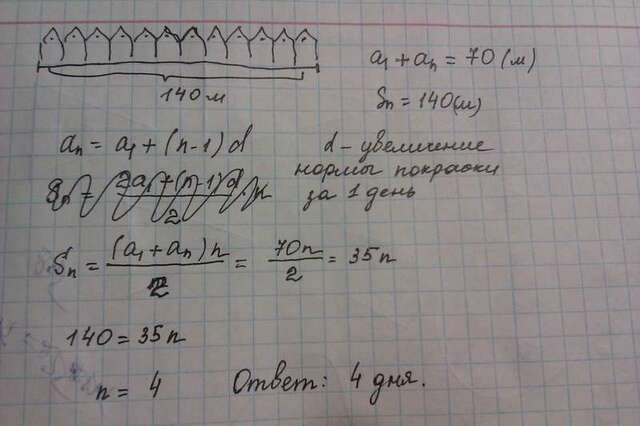 140 м
a₁ + aₙ = 70 (м)
Sₙ = 140(м)
aₙ = a₁ + (n-1) d
d – увеличение
нормы покраски
за 1 день
Sₙ = (a₁ + aₙ) n / 2 = 70n / 2 = 35n
140 = 35n
n = 4
Ответ: 4 дня.